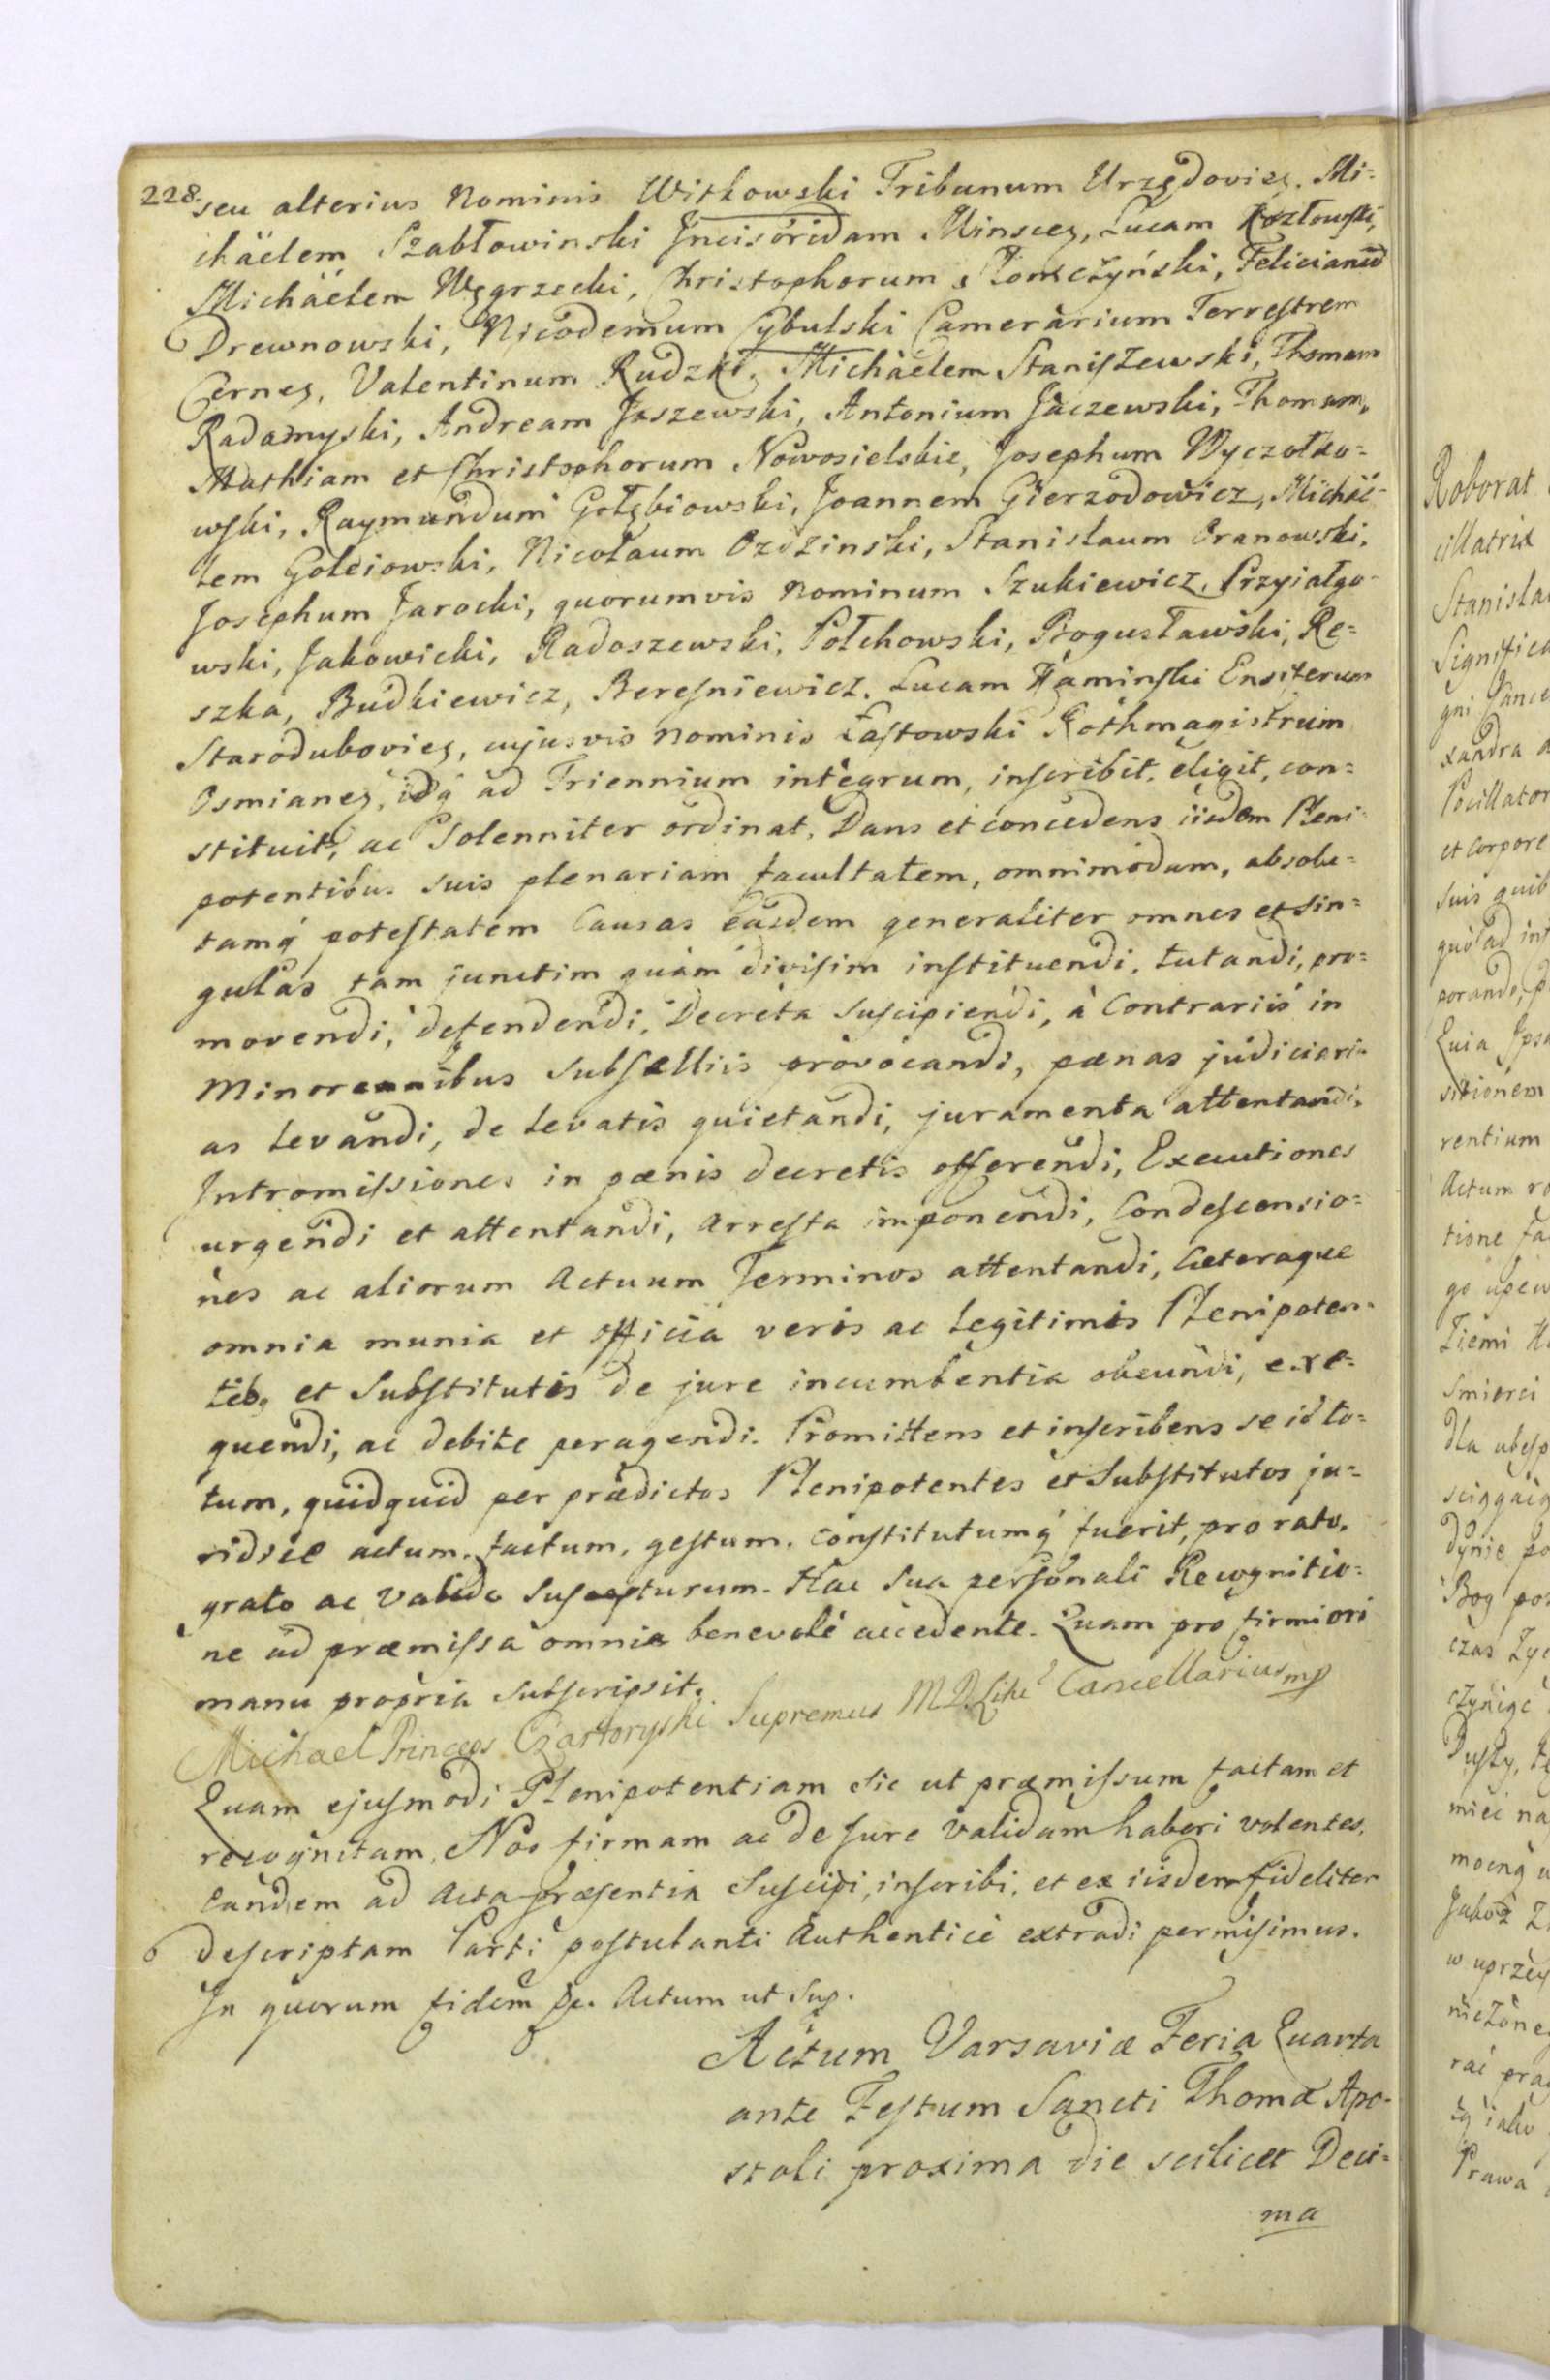 228.
seu alterius Nominis Witkowski Tribunum Urzędovieȝ. Mi=
chäelem Szabłowinski Incisoridam Minsceȝ, Lucam Kozłowski,
Michäelem Węgrzecki, Christophorum Słomczyński, Felicianu
Drewnowski, Nicodemum Cybulski Camerarium Terrestrem
Cerneȝ, Valentinum Rudzki, Michäelem Staniszewski, Thomam
Radomyski, Andream Jaszewski, Antonium Jaczewski, Thomam,
Mathiam et Christophorum Nowosielskie, Josephum Wyczołko=
wski, Raymundum Gołębiowski, Joannem Gierzodowicz, Michäe=
lem Goleiowski, Nicolaum Ozdzinski, Stanislaum Oranowski,
Josephum Jarocki, quorumvis Nominum Szukiewicz, Przyiałgo=
wski, Jakowicki, Radoszewski, Połchowski, Bogusławski, Re=
szka, Budkiewicz, Beresniewicz, Lucam Kaminski Ensiferum
Starodubovieȝ, cujusvis Nominis Łastowski Rothmagistrum
Osmianeȝ, idq́ ad Triennium integrum, inscribit, eligit, con=
stituit, ac Solenniter ordinat. Dans et concedens iisdem Pleni=
potentibus suis plenariam facultatem, omnimodam, absolu=
tamq́ potestatem Causas easdem generaliter omnes et sin=
gulas tam junctim quàm divisim instituendi, tutandi, pro=
movendi, defendendi, Decreta suscipiendi, à Contrariis in
Minoribus Subselliis provocandi, pænas judiciari=
as levandi, de levatis quietandi, juramenta attentandi,
Intromissiones in pænis decretis offerendi, Executiones
urgendi et attentandi, Arresta imponendi, Condescensio=
nes ac aliorum Actuum Terminos attentandi, Cæteraque
omnia munia et officia veris ac legitimis Plenipoten=
tibȝ et Substitutis de jure incumbentia obeundi, exe=
quendi, ac debite peragendi. Promittens et inscribens se id to=
tum, quidquid per prædictos Plenipotentes et Substitutos ju=
ridice actum, factum, gestum, constitutumq́ fuerit, pro rato,
grato ac valido suscepturum. Hac sua personali Recognitio=
ne ad præmissa omnia benevolè accedente. Quam pro firmiori
manu propria subscripsit.
Michael Princeps Czartoryski Supremus M D Litt Cancellarius mp
Quam ejusmodi Plenipotentiam sic ut præmissum factam et
recognitam, Nos firmam ac de Jure validam haberi volentes,
eandem ad Acta præsentia Suscipi, inscribi, et ex iisdem fideliter
descriptam Parti postulanti Authenticè extradi permisimus.
In quorum fidem &c. Actum ut sup.
Actum Varsaviæ Feria Quarta
ante Festum Sancti Thomæ Apo=
stoli proxima die scilicet Deci=
ma
Roborat
cillatrix
Stanisla
Significa
gni
xandra a
Pocillator
et corpore
suis quib
quò ad inf
porando, p
Quia Ipsa
sitionem
rentium
Actum ro
tione fa
go upew
Ziemi
Smierci
dla ubesp
sciągaią
dynie po
Bog po
czas Zyc
czyniąc
Duszy, tę
mieć na
mocną u
Jakoż Z
w uprzey
nieZone
rać pra
ią iako
Prawa